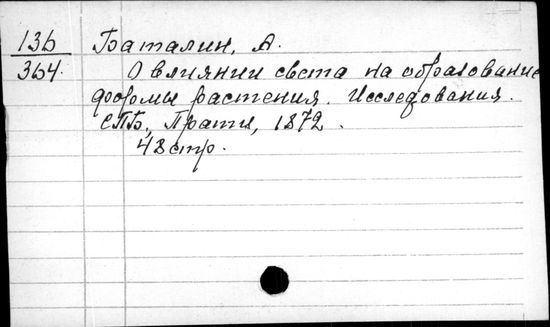 136 Баталин, А.
364. О влиянии света на образование
формы растения. Исследования.
СПБ., Тратти, 1872.
48 стр.